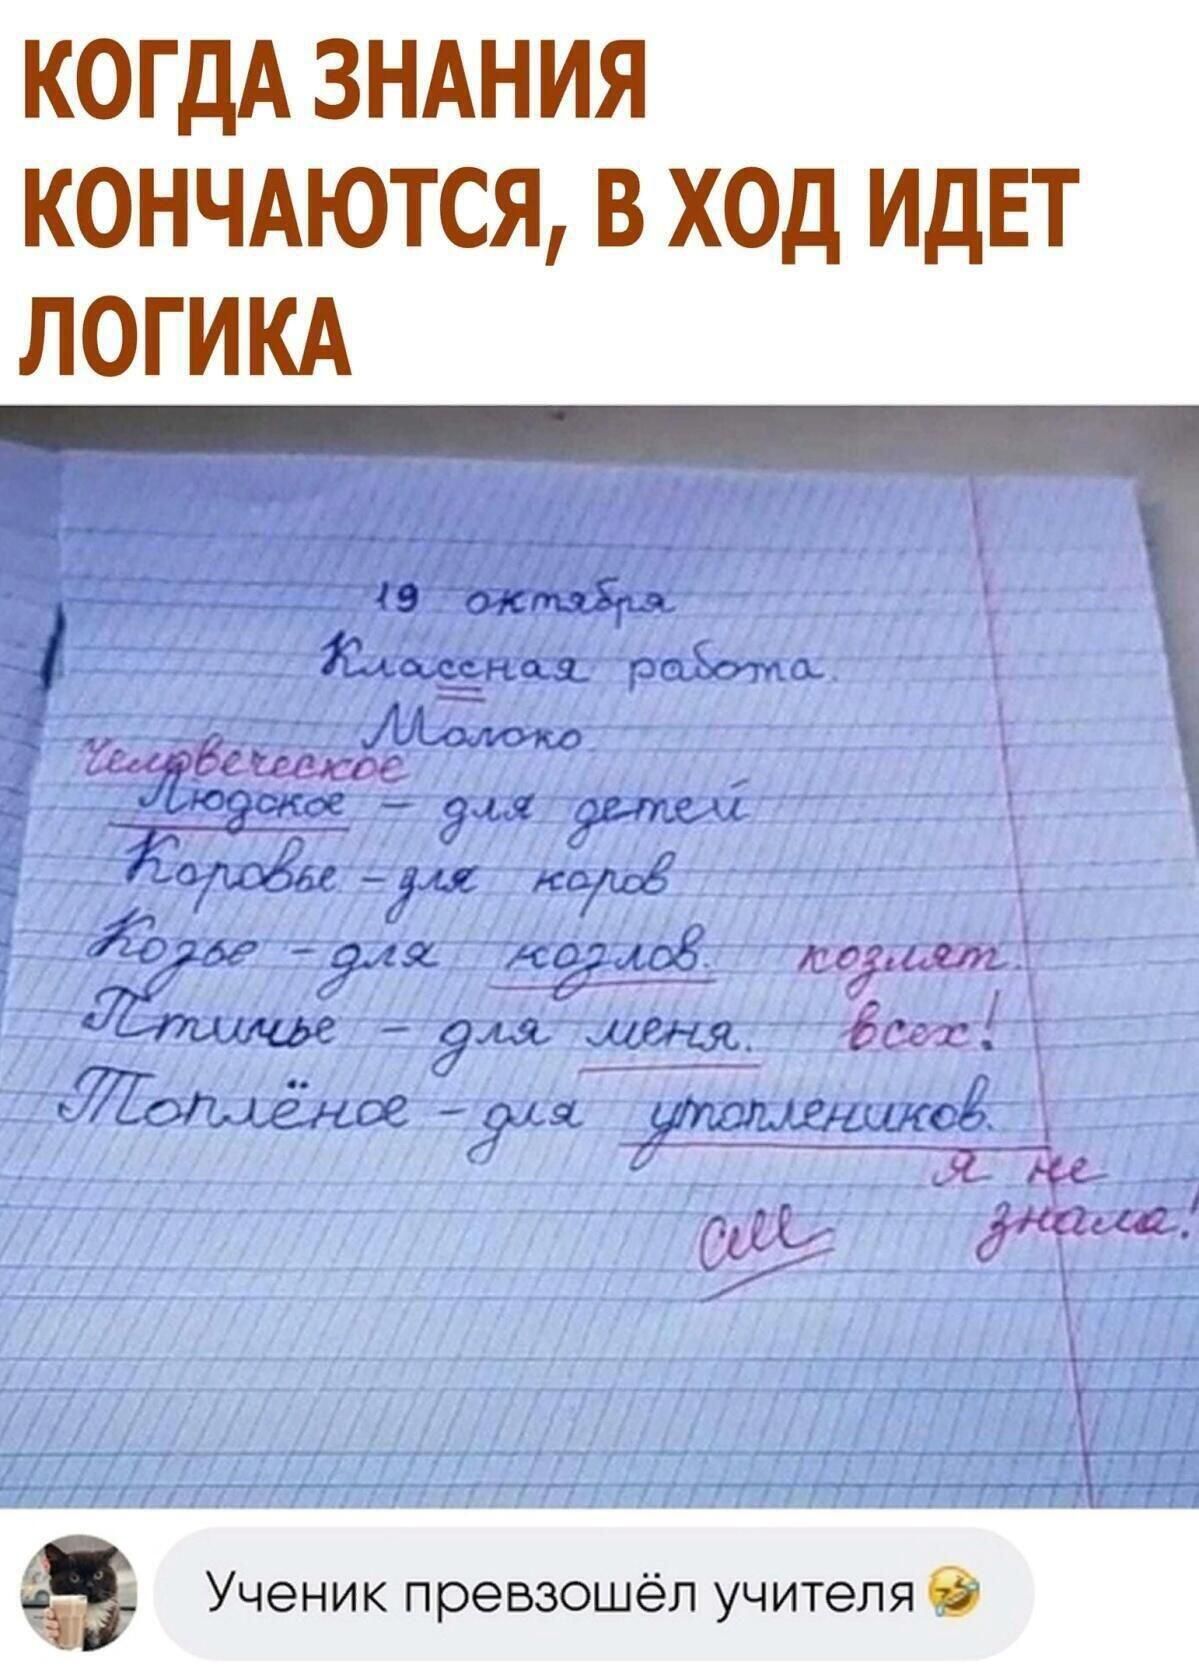 КОГДА ЗНАНИЯ
КОНЧАЮТСЯ, В ХОД ИДЕТ
ЛОГИКА
19 октября
Классная работа.
Молоко
Человеческое
Людское – для детей
Коровье – для коров
Козье – для козлов. козлят.
Птичье – для меня. всех!
Топлёное – для утоплеников.
я не
знала!
см
Ученик превзошёл учителя 🤣